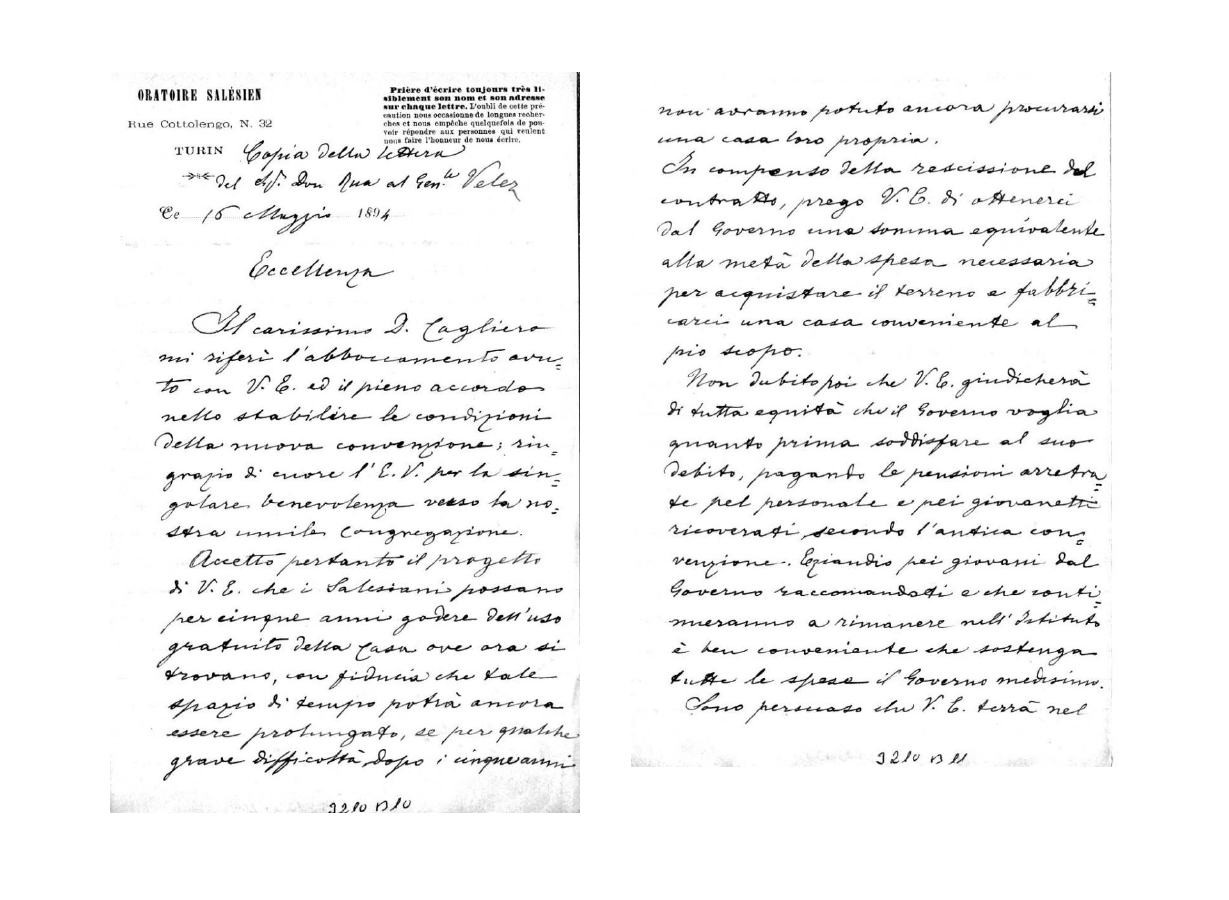 ORATOIRE SALÉSIEN
Rue Cottolengo, N. 32
TURIN
Prière d'écrire toujours très li-
siblement son nom et son adresse
sur chaque lettre. L'oubli de cette pré-
caution nous occasionne de longues recher-
ches et nous empêche quelquefois de pou-
voir répondre aux personnes qui veulent
nous faire l'honneur de nous écrire.
Copia della lettera
del Sr. Don Rua al Gen.le Velez
Ce 16 Maggio 1894
Eccellenza
Il carissimo D. Cagliero
mi riferì l'abboccamento avu=
to con V. E. ed il pieno accordo
nello stabilire le condizioni
della nuova convenzione; rin=
grazio di cuore l'E. V. per la sin=
golare benevolenza verso la no=
stra umile Congregazione.
Accetto pertanto il progetto
di V. E. che i Salesiani possano
per cinque anni godere dell'uso
gratuito della Casa ove ora si
trovano, con fiducia che tale
spazio di tempo potrà ancora
essere prolungato, se per qualche
grave difficoltà dopo i cinque anni
3210 B 10
non avranno potuto ancora procurarsi
una casa loro propria.
In compenso della rescissione del
contratto, prego V. E. di ottenerci
dal Governo una somma equivalente
alla metà della spesa necessaria
per acquistare il terreno e fabbri=
carci una casa conveniente al
pio scopo.
Non dubito poi che V. E. giudicherà
di tutta equità che il Governo voglia
quanto prima soddisfare al suo
debito, pagando le pensioni arretra=
te pel personale e pei giovanetti
ricoverati secondo l'antica con=
venzione. Eziandio pei giovani dal
Governo raccomandati e che conti=
nueranno a rimanere nell'Istituto
è ben conveniente che sostenga
tutte le spese il Governo medesimo.
Sono persuaso che V. E. terrà nel
3210 B 11